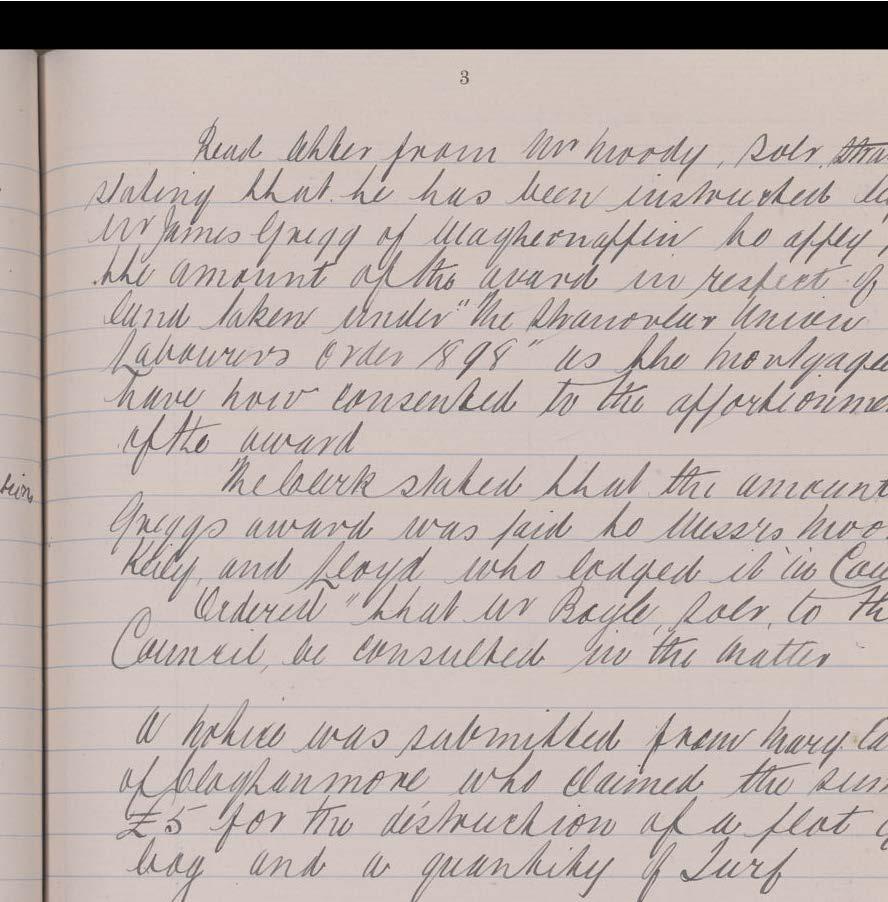 3
Read letter from Mr Moody, Solr. Stra
stating that he has been instructed
Mr James Gregg of Magheralaffin to apply
the amount of the award in respect of
land taken under "The Stranorlar Union
Labourers Order 1898" as the mortgage
have now consented to the apportionme
of the award
The Clerk stated that the amount
Greggs award was paid to Messrs Moo
and Lloyd who lodged it in Cou
Ordered "that Mr Boyle, Solr. to th
Council, be consulted in the matter
A notice was submitted from Mary
of Cloghanmore who claimed the sum
£5 for the destruction of a plot
bog and a quantity of Turf